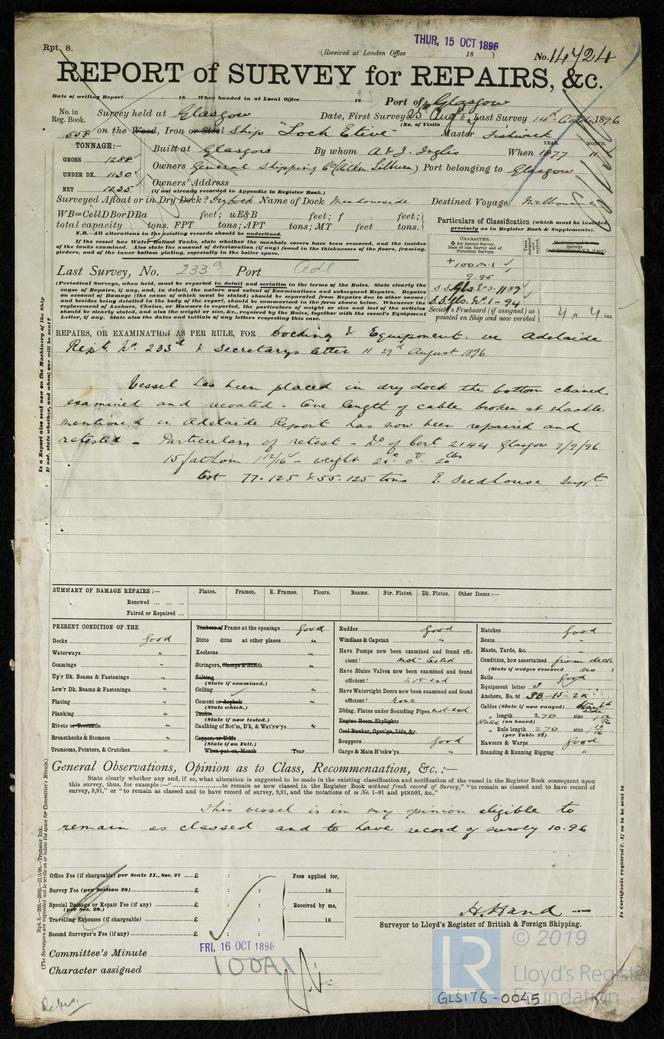 Rpt. 8.
THUR, 15 OCT 1896
(Received at London Office 18 )
No. 14724
REPORT of SURVEY for REPAIRS, &c.
Date of writing Report 18 When handed in at Local Office 18 Port of Glasgow
No. in Reg. Book. Survey held at Glasgow Date, First Survey 25 Aug Last Survey 14th Oct 1896
(No. of Visits
658 on the Wood, Iron or Steel Ship "Loch Etive" Master Fishwick
TONNAGE:—
GROSS 1288
UNDER DK. 1130
NET 1235
Built at Glasgow By whom A & J. Inglis When 1877 11
YEAR. MONTH.
Owners General Shipping Co Port belonging to Glasgow
Owners' Address
(if not already recorded in Appendix to Register Book.)
Surveyed Afloat or in Dry Dock? Dry dock Name of Dock Meadowside Destined Voyage Melbourne
WB=CellDBorDBa feet; uE&B feet; f feet;
total capacity tons. FPT tons; APT tons; MT feet tons.
N.B.—All alterations in the existing records should be underlined.
If the vessel has Water Ballast Tanks, state whether the manhole covers have been removed, and the insides of the tanks examined. Also state the amount of deterioration (if any) found in the thicknesses of the floors, framing, girders, and of the inner bottom plating, especially in the boiler space.
Particulars of Classification (which must be inserted precisely as in Register Book & Supplements).
CHARACTER.
+100A1
2.95
S.S. Gls No 3-11.89
S.S. Gls No 1-94
Society's Freeboard (if assigned) as painted on Ship and now verified
Last Survey, No. 233a Port Adl
(Periodical Surveys, when held, must be reported in detail and seriatim in the terms of the Rules. State clearly the cause of Repairs, if any, and, in detail, the nature and extent of Examinations and subsequent Repairs. Repairs on account of Damage (the cause of which must be stated) should be separated from Repairs due to other causes; and besides being detailed in the body of the report, should be summarized in the form shown below.
REPAIRS, OR EXAMINATION AS PER RULE, FOR Docking & Equipment. see Adelaide
Rept. No. 233a & Secretarys letter H 29th August 1896
Vessel has been placed in dry dock the bottom cleaned
examined and recoated – One length of cable broken at shackle
mentioned in Adelaide Report has now been repaired and
retested – Particulars of retest – No of Cert 2144 Glasgow 7/9/96
15 fathom 1 12/16 – weight
Test 77.125 & 55.125 tons E. Seedhouse Supt.
SUMMARY OF DAMAGE REPAIRS:— Plates. Frames. R. Frames. Floors. Beams. Str. Plates. Dk. Plates. Other Items:—
Renewed ... ... ...
Faired or Repaired ...
PRESENT CONDITION OF THE
Decks Good
Waterways "
Coamings "
Up'r Dk. Beams & Fastenings "
Low'r Dk. Beams & Fastenings "
Plating "
Planking "
Rivets or Treenails "
Breasthooks & Stemson "
Transoms, Pointers, & Crutches "
Timbers of Frame at the openings Good
Ditto ditto at other places "
Keelsons "
Stringers, Clamps & Shelfs "
Salting
(State if examined.)
Ceiling
Cement or Asphalt "
(State which.)
Tanks
(State if now tested.)
Caulking of Bot'm, D'k, & Wat'rw'ys "
Copper, or Y.M.
(State if on Felt.)
When put on, Month Year
Rudder Good
Windlass & Capstan "
Have Pumps now been examined and found efficient? not tested
Have Sluice Valves now been examined and found efficient? not exd
Have Watertight Doors now been examined and found efficient? none
Dblng. Plates under Sounding Pipes not exd
Engine Room Skylights
Coal Bunker, Open'gs, Lids, &c.
Scuppers Good
Cargo & Main H'tchw'ys "
Hatches Good
Boats "
Masts, Yards, &c. "
Condition, how ascertained from deck
(State if wedges removed no)
Sails Good
Equipment letter
Anchors, No. of 3B-1S-2K
Cables (State if now ranged)
" length 270 size
(on board)
" Rule length 270 size
(per Table 22)
Hawsers & Warps Good
Standing & Running Rigging "
General Observations, Opinion as to Class, Recommenaation, &c. :—
State clearly whether any, and if so, what alteration is suggested to be made in the existing classification and notification of the vessel in the Register Book consequent upon this survey, thus, for example :—" to remain as now classed in the Register Book without fresh record of Survey," "to remain as classed and to have record of survey, 9,91," or "to remain as classed and to have record of survey, 9,91, and the notations of ss No. 1-91 and PSND91, &c."
This vessel is in my opinion eligible to
remain as classed and to have record of survey 10.96
Office Fee (if chargeable) per Scale II., Sec. 27 ... £ : :
Survey Fee (per Section 28) ... £ : :
Special Damage or Repair Fee (if any) ... £ : :
(per Sec. 28.)
Travelling Expenses (if chargeable) ... £ : :
Second Surveyor's Fee (if any) ... £ : :
Fees applied for,
18
Received by me,
18
H. Hand
Surveyor to Lloyd's Register of British & Foreign Shipping.
Committee's Minute FRI. 16 OCT 1896
Character assigned 100A1
© 2019
LR
Lloyd's Register
Foundation
GLS176-0045